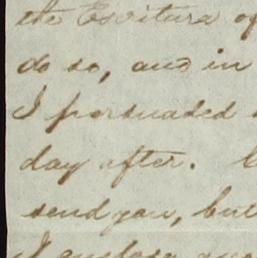 the Escitura of
do so, and in
I persuaded
day after.
send you, but
I enclose